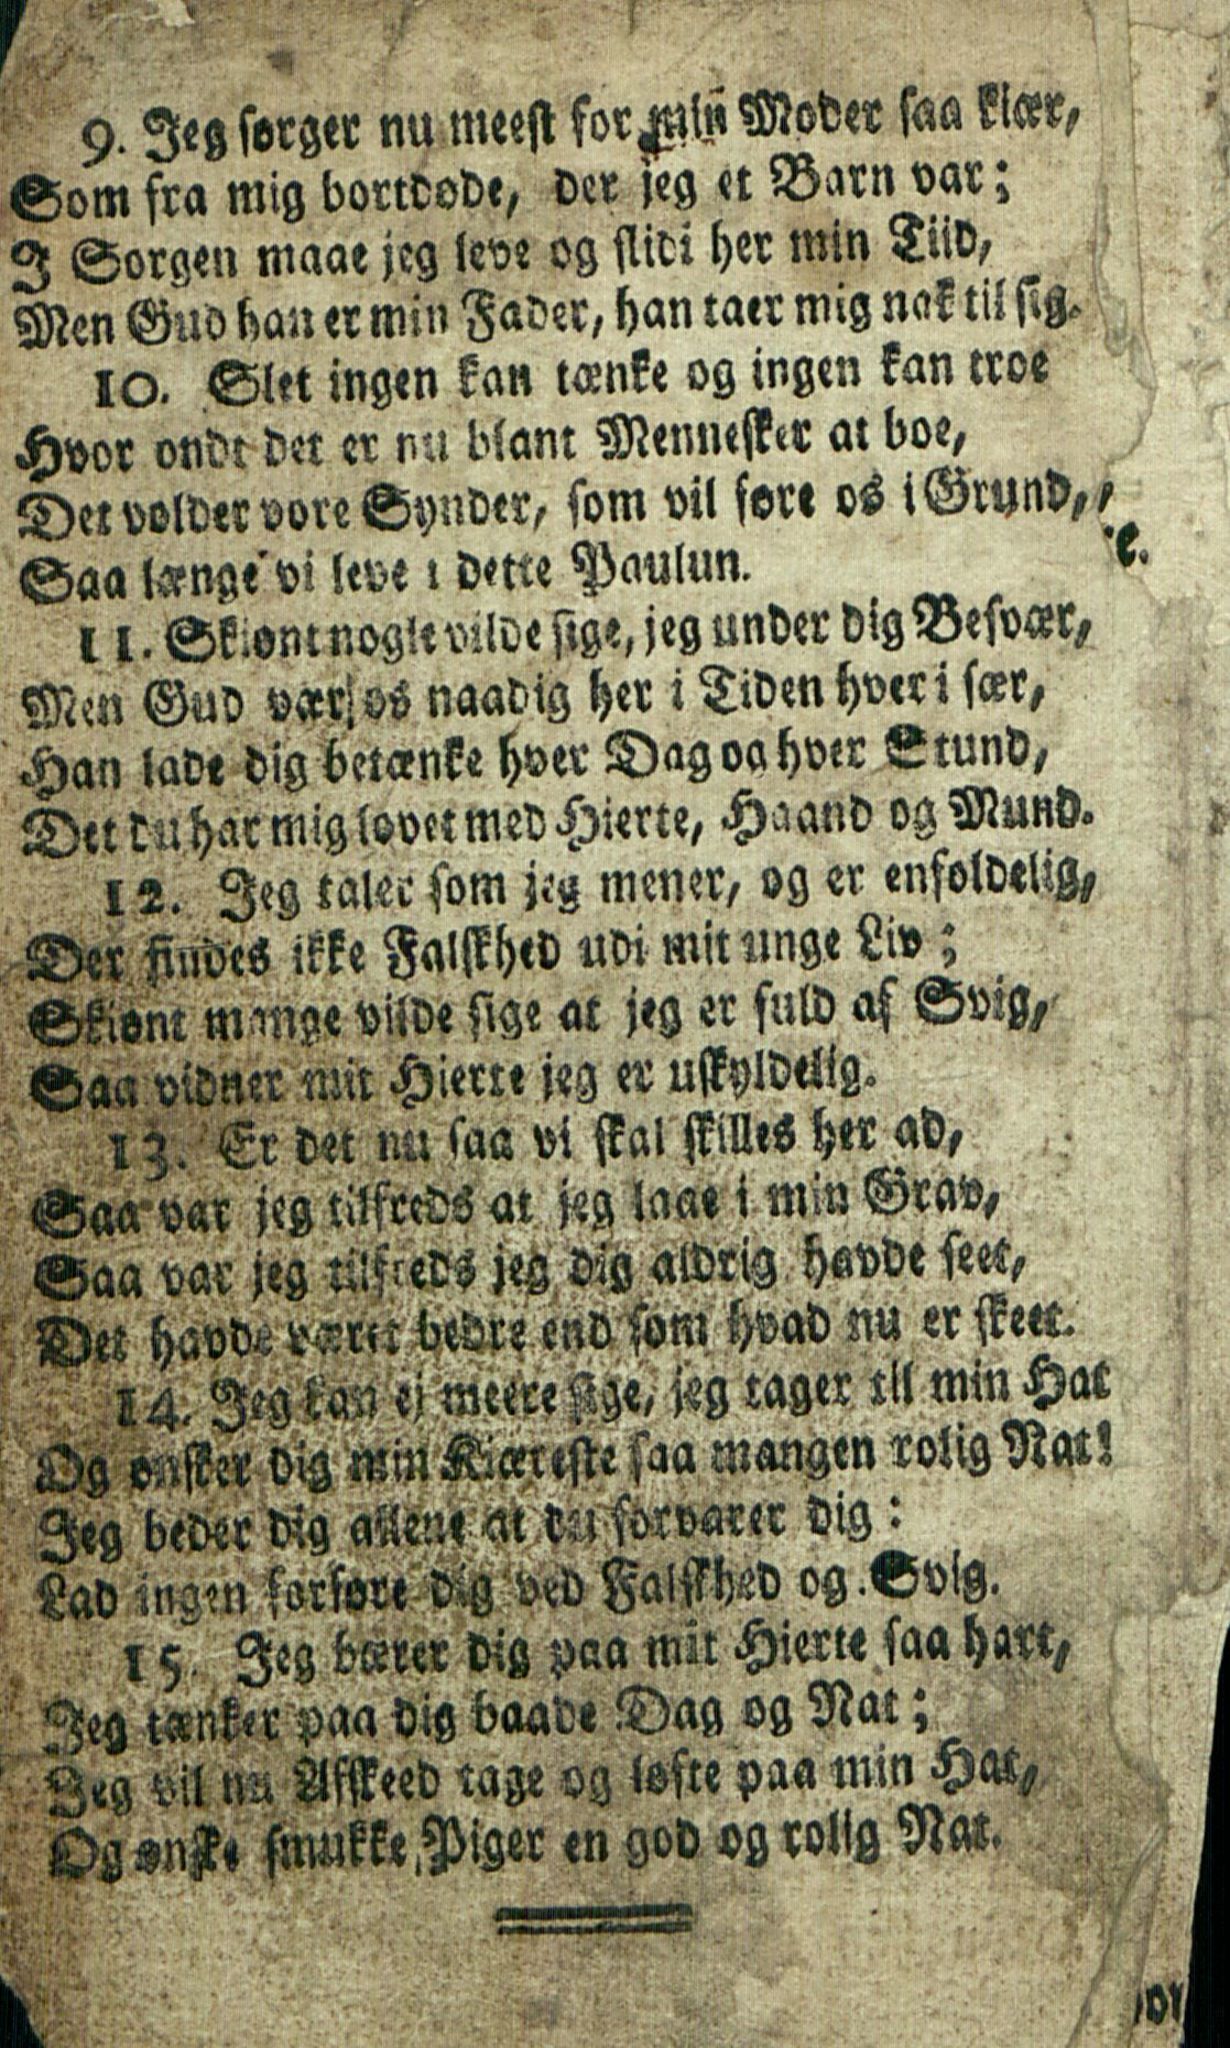 9. Jeg sørger nu meest for min̄ Moder saa kiær,
Som fra mig bortdøde, der jeg et Barn var;
I Sorgen maae jeg leve og slidi her min Tiid,
Men Gud han er min Fader, han taer mig nok til sig.
10. Slet ingen kan tænke og ingen kan troe
Hvor ondt det er nu blant Mennesker at boe,
Det volder vore Synder, som vil føre os i Grund,
Saa længe vi leve i dette Paulun.
11. Skiønt nogle vilde sige, jeg under dig Besvær,
Men Gud vær os naadig her i Tiden hver i sær,
Han lade dig betænke hver Dag og hver Stund,
Det du har mig lovet med Hierte, Haand og Mund.
12. Jeg taler som jeg mener, og er enfoldelig,
Der findes ikke Falskhed udi mit unge Liv;
Skiønt mange vilde sige at jeg er fuld af Svig,
Saa vidner mit Hierte jeg er uskyldelig.
13. Er det nu saa vi skal skilles her ad,
Saa var jeg tilfreds at jeg laae i min Grav,
Saa var jeg tilfreds jeg dig aldrig havde seet,
Det havde været bedre end som hvad nu er skeet.
14. Jeg kan ej meere sige, jeg tager til min Hat
Og ønsker dig min Kiæreste saa mangen rolig Nat!
Jeg beder dig allene at du forvarer dig:
Lad ingen forføre dig ved Falskhed og Svig.
15. Jeg bærer dig paa mit Hierte saa hart,
Jeg tænker paa dig baade Dag og Nat;
Jeg vil nu Afskeed tage og løfte paa min Hat,
Og ønske smukke Piger en god og rolig Nat.